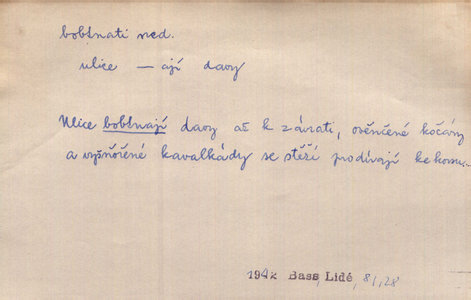 bobtnati ned.
ulice — ají davy
Ulice bobtnají davy až k závrati, ověnčené kočáry
a vyšňořené kavalkády se stěží prodívají ke korsu...
1942 Bass, Lidé, 81, 28